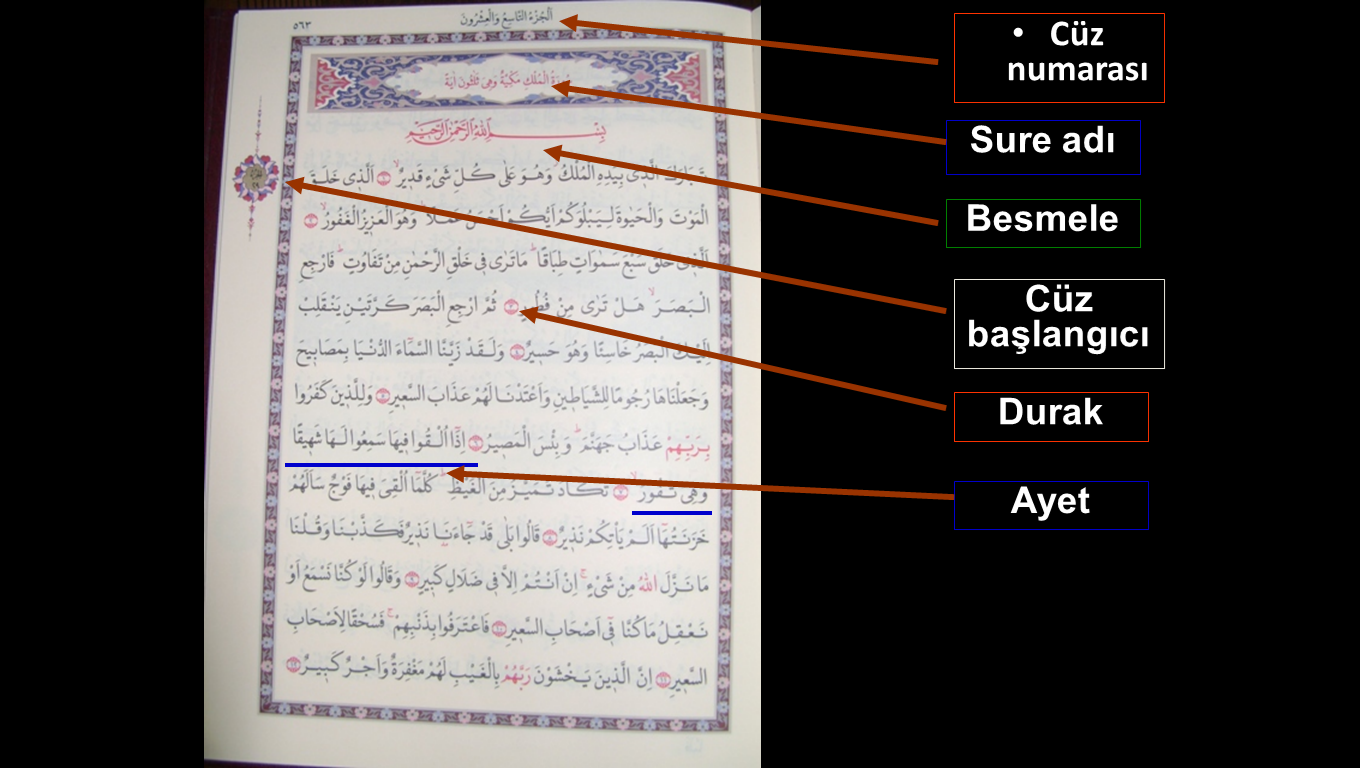 ٥٦٣
اَلْجُزْءُ التَّاسِعُ وَالْعِشْرُونَ
سُورَةُ الْمُلْكِ مَكِّيَّةٌ وَهِىَ ثَلٰثُونَ اٰيَةً
بِسْمِ اللّٰهِ الرَّحْمٰنِ الرَّحٖيمِ
تَبَارَكَ الَّذٖى بِيَدِهِ الْمُلْكُ وَهُوَ عَلٰى كُلِّ شَىْءٍ قَدٖيرٌۙ ﴿١﴾ اَلَّذٖى خَلَقَ
الْمَوْتَ وَالْحَيٰوةَ لِيَبْلُوَكُمْ اَيُّكُمْ اَحْسَنُ عَمَلًاۜ وَهُوَ الْعَزٖيزُ الْغَفُورُۙ ﴿٢﴾
اَلَّذٖى خَلَقَ سَبْعَ سَمٰوَاتٍ طِبَاقًاۜ مَا تَرٰى فٖى خَلْقِ الرَّحْمٰنِ مِنْ تَفَاوُتٍۜ فَارْجِعِ
الْبَصَرَۙ هَلْ تَرٰى مِنْ فُطُورٍ ﴿٣﴾ ثُمَّ ارْجِعِ الْبَصَرَ كَرَّتَيْنِ يَنْقَلِبْ
اِلَيْكَ الْبَصَرُ خَاسِئًا وَهُوَ حَسٖيرٌ ﴿٤﴾ وَلَقَدْ زَيَّنَّا السَّمَٓاءَ الدُّنْيَا بِمَصَابٖيحَ
وَجَعَلْنَاهَا رُجُومًا لِلشَّيَاطٖينِ وَاَعْتَدْنَا لَهُمْ عَذَابَ السَّعٖيرِ ﴿٥﴾ وَلِلَّذٖينَ كَفَرُوا
بِرَبِّهِمْ عَذَابُ جَهَنَّمَۜ وَبِئْسَ الْمَصٖيرُ ﴿٦﴾ اِذَٓا اُلْقُوا فٖيهَا سَمِعُوا لَهَا شَهٖيقًا
وَهِىَ تَفُورُۙ ﴿٧﴾ تَكَادُ تَمَيَّزُ مِنَ الْغَيْظِۜ كُلَّمَٓا اُلْقِىَ فٖيهَا فَوْجٌ سَاَلَهُمْ
خَزَنَتُهَٓا اَلَمْ يَاْتِكُمْ نَذٖيرٌ ﴿٨﴾ قَالُوا بَلٰى قَدْ جَٓاءَنَا نَذٖيرٌ فَكَذَّبْنَا وَقُلْنَا
مَا نَزَّلَ اللّٰهُ مِنْ شَىْءٍۚ اِنْ اَنْتُمْ اِلَّا فٖى ضَلَالٍ كَبٖيرٍ ﴿٩﴾ وَقَالُوا لَوْ كُنَّا نَسْمَعُ اَوْ
نَعْقِلُ مَا كُنَّا فٖٓى اَصْحَابِ السَّعٖيرِ ﴿١٠﴾ فَاعْتَرَفُوا بِذَنْبِهِمْۚ فَسُحْقًا لِاَصْحَابِ
السَّعٖيرِ ﴿١١﴾ اِنَّ الَّذٖينَ يَخْشَوْنَ رَبَّهُمْ بِالْغَيْبِ لَهُمْ مَغْفِرَةٌ وَاَجْرٌ كَبٖيرٌ ﴿١٢﴾
• Cüz
numarası
Sure adı
Besmele
Cüz
başlangıcı
Durak
Ayet